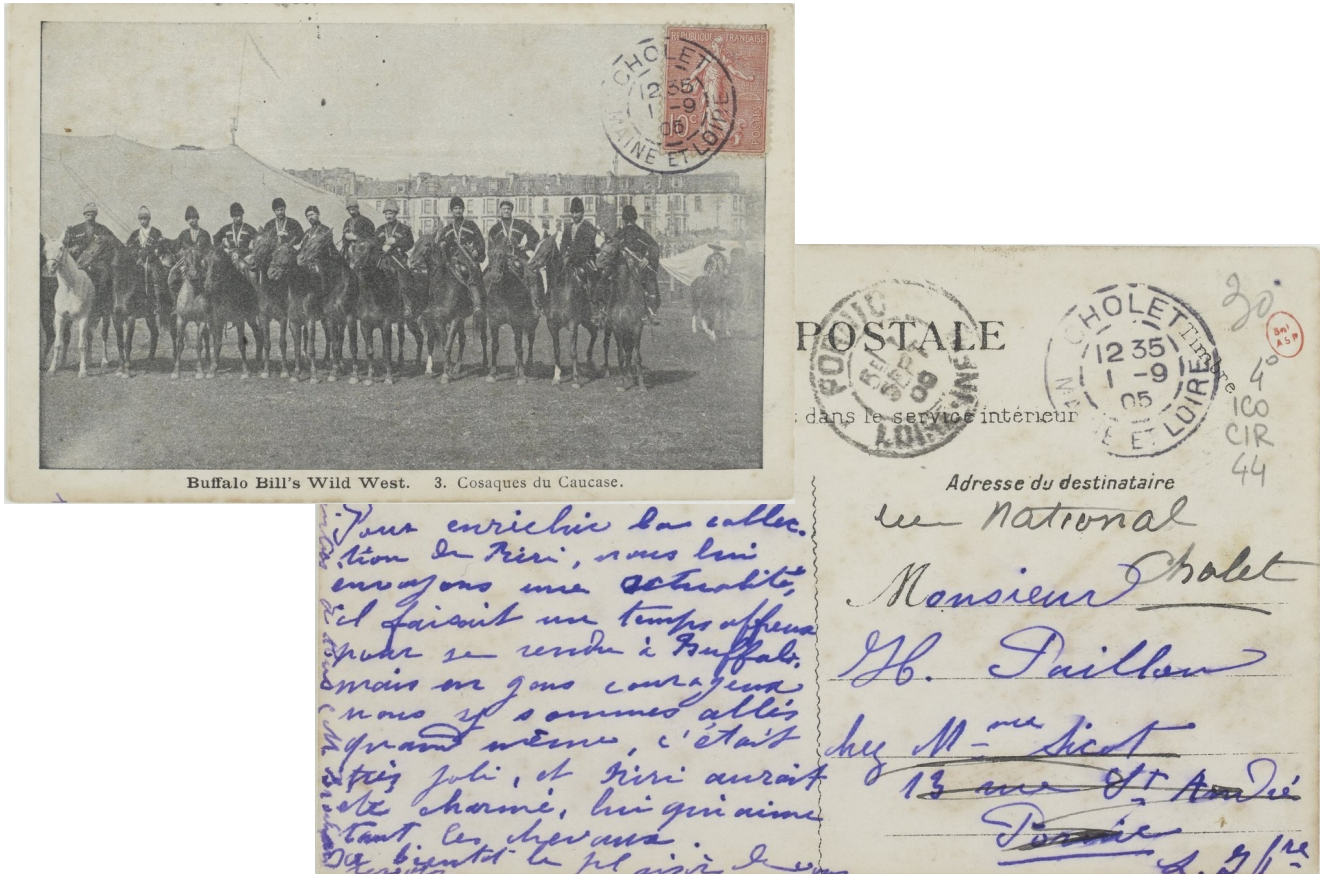 REPUBLIQUE FRANÇAISE
10c
POSTES
CHOLET
12 35
1 -9
05
MAINE ET LOIRE
Buffalo Bill's Wild West. 3. Cosaques du Caucase.
POSTALE
dans le service intérieur
CHOLET
12 35
1 -9
05
MAINE ET LOIRE
Timbre
SEPT
LOIRE
30
4°
ICO
CIR
44
Adresse du destinataire
rue National
Cholet
Monsieur
H. Paillou
chez Mme Sicot
13 rue St André
Pornic
L. Ifre
Pour enrichir la collec-
tion de Riri, nous lui
envoyons une actualité,
il faisait un temps affreux
pour se rendre à Buffalo,
mais en gens courageux
nous y sommes allés
quand même, c'était
très joli, et Riri aurait
été charmé, lui qui aime
tant les chevaux.
A bientôt le plaisir de vous